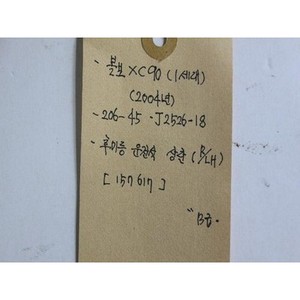 - 볼보 XC90 (1세대)
(2004년)
- 206-45-J2526-18
- 후미등 운전석 상단 (B/LH)
[157617]
"B급.